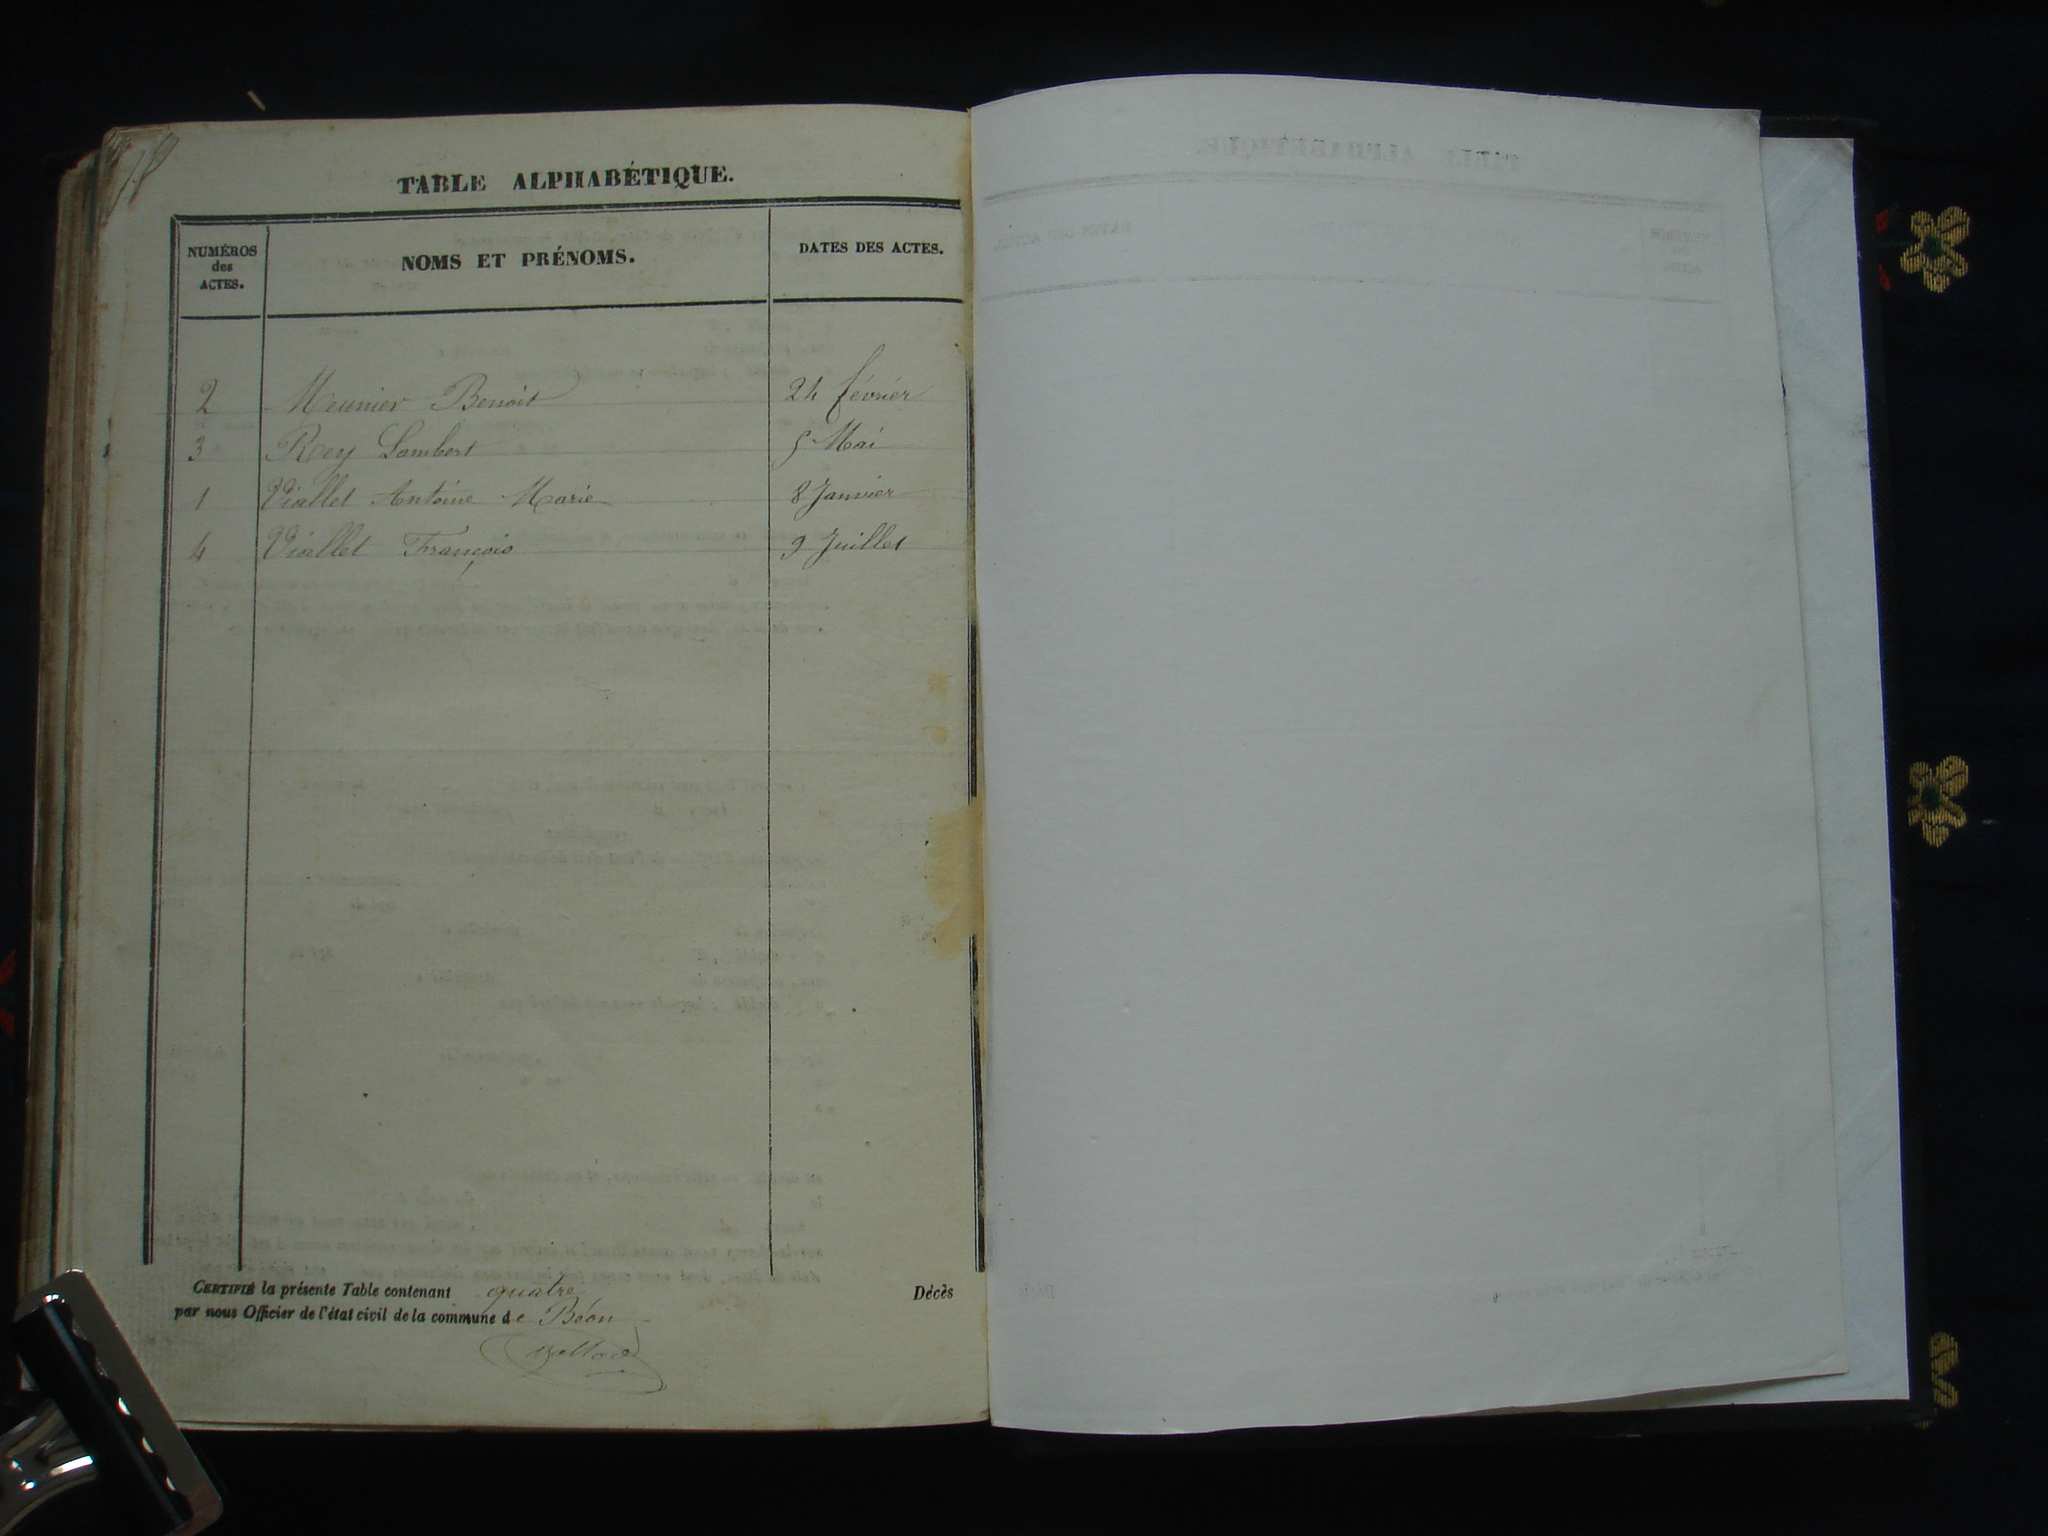 TABLE ALPHABÉTIQUE.
NUMÉROS des ACTES. NOMS ET PRÉNOMS. DATES DES ACTES.
2 Meunier Benoit 24 février
3 Rey Lambert 5 Mai
1 Viallet Antoine Marie 8 Janvier
4 Viallet François 9 Juillet
CERTIFIÉ la présente Table contenant quatre Décès
par nous Officier de l'état civil de la commune de Béon